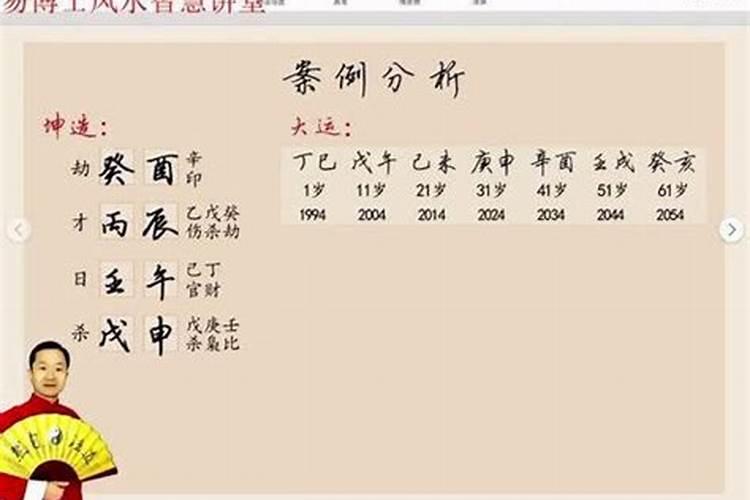 易博士风水智慧讲堂
案例分析
坤造： 大运：
劫 癸 酉 辛 印
才 丙 辰 乙戊癸 伤杀劫
日 壬 午 己丁 官财
杀 戊 申 戊庚壬 杀枭比
丁巳 戊午 己未 庚申 辛酉 壬戌 癸亥
1岁 11岁 21岁 31岁 41岁 51岁 61岁
1994 2004 2014 2024 2034 2044 2054